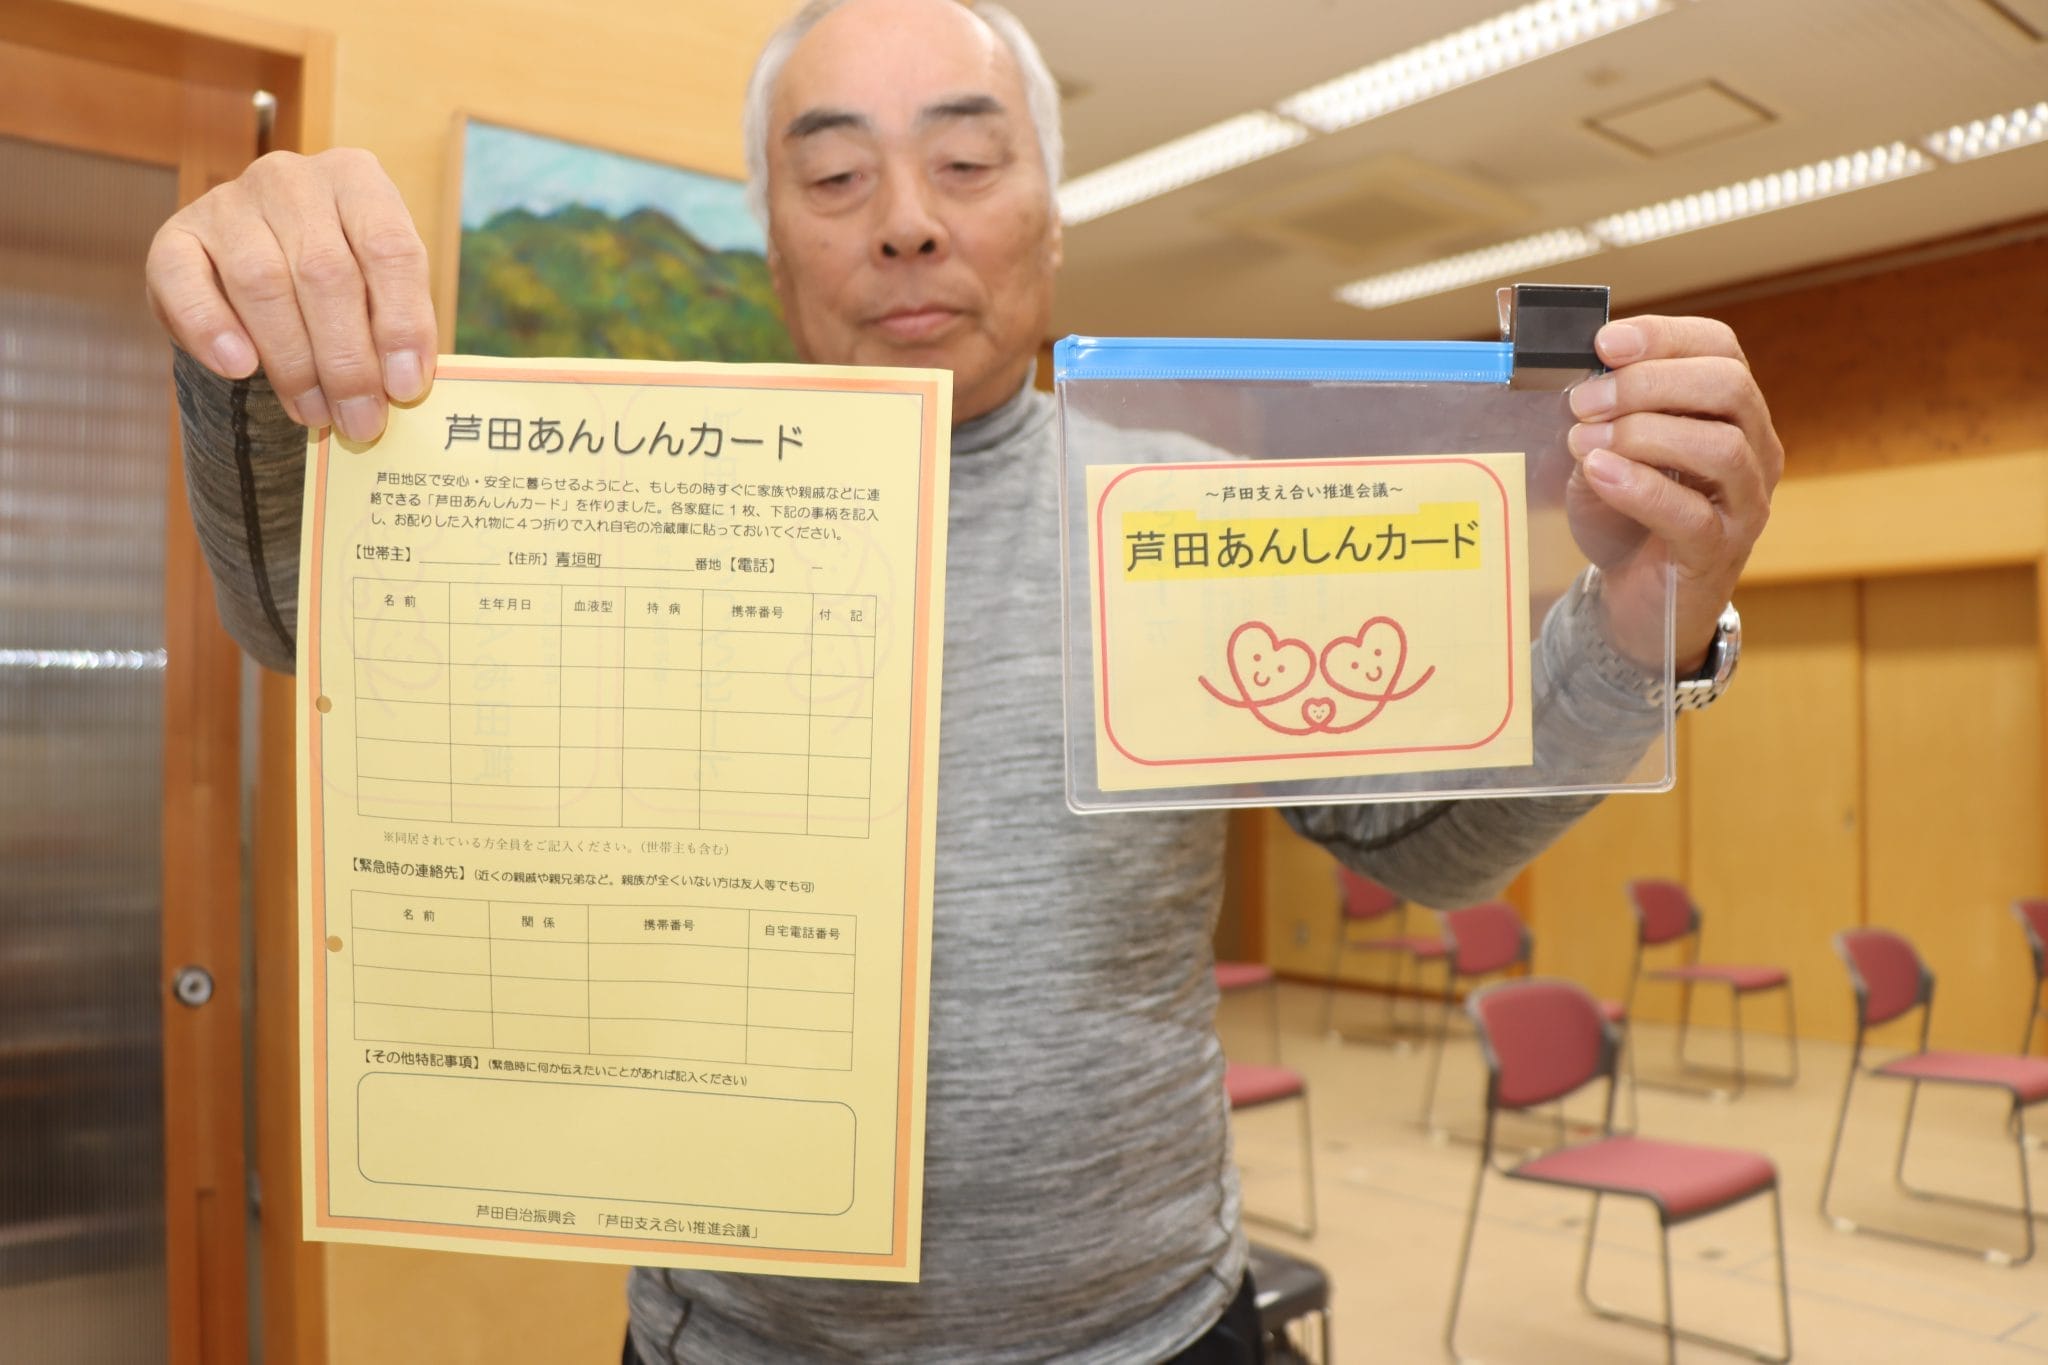 芦田あんしんカード
芦田地区で安心・安全に暮らせるようにと、もしもの時すぐに家族や親戚などに連
絡できる「芦田あんしんカード」を作りました。各家庭に1枚、下記の事柄を記入
し、お配りした入れ物に4つ折りで入れ自宅の冷蔵庫に貼っておいてください。
【世帯主】 【住所】青垣町 番地【電話】 －
名 前 生年月日 血液型 持 病 携帯番号 付 記
※同居されている方全員をご記入ください。(世帯主も含む)
【緊急時の連絡先】(近くの親戚や親兄弟など。親族が全くいない方は友人等でも可)
名 前 関 係 携帯番号 自宅電話番号
【その他特記事項】(緊急時に何か伝えたいことがあれば記入ください)
芦田自治振興会 「芦田支え合い推進会議」
～芦田支え合い推進会議～
芦田あんしんカード